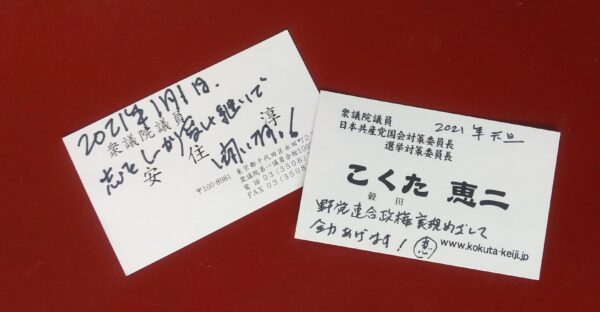 2021年1月1日.
衆議院議員
志をしかと受け継いで
安住 淳
闘います!
〒100-8981 東京都千代田区永田町2
衆議院第一議員会館100
電話 03(3508)
FAX 03(3508)
衆議院議員
日本共産党国会対策委員長
選挙対策委員長
2021年元旦
こくた 恵二
穀田
野党連合政権実現めざして
全力あげます! 恵
www.kokuta-keiji.jp